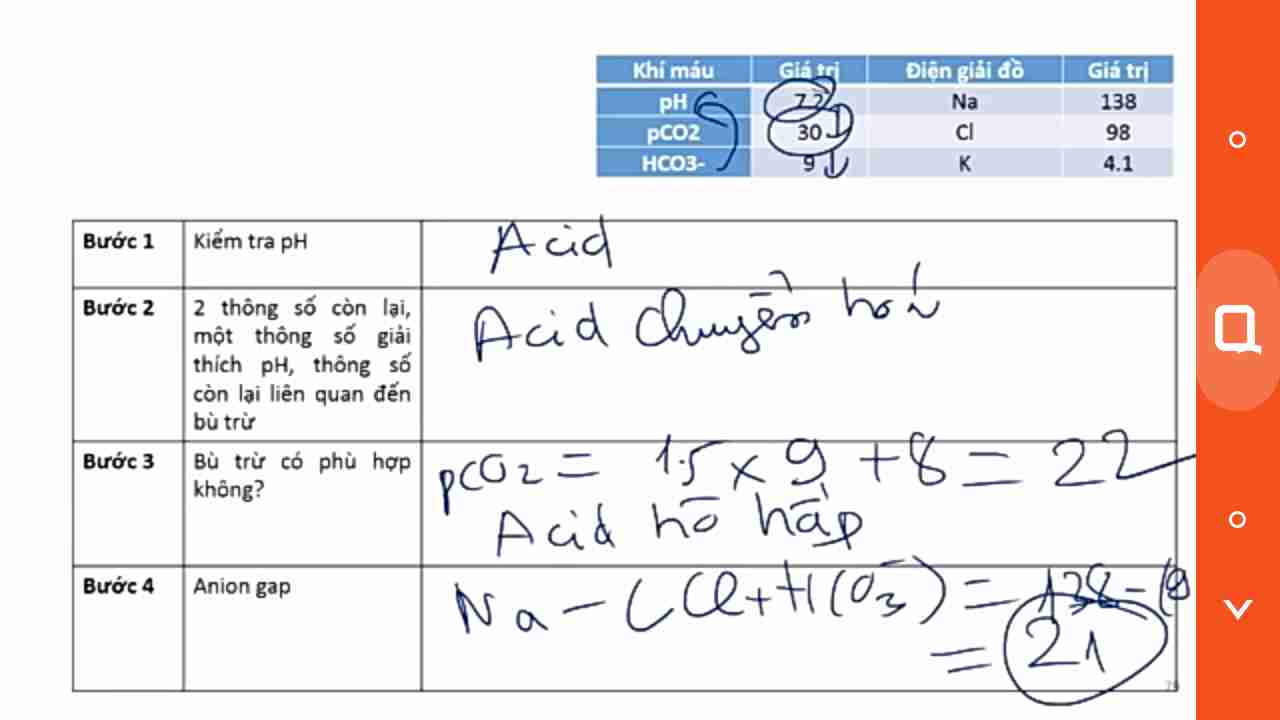 Khí máu Giá trị Điện giải đồ Giá trị
pH 7.2 Na 138
pCO2 30 Cl 98
HCO3- 9 K 4.1
Bước 1 Kiểm tra pH Acid
Bước 2 2 thông số còn lại,
một thông số giải
thích pH, thông số
còn lại liên quan đến
bù trừ
Acid chuyển hoá
Bước 3 Bù trừ có phù hợp
không?
pCO2 = 1.5 x 9 + 8 = 22
Acid hô hấp
Bước 4 Anion gap
Na - (Cl + HCO3-) = 138 - (9
= 21